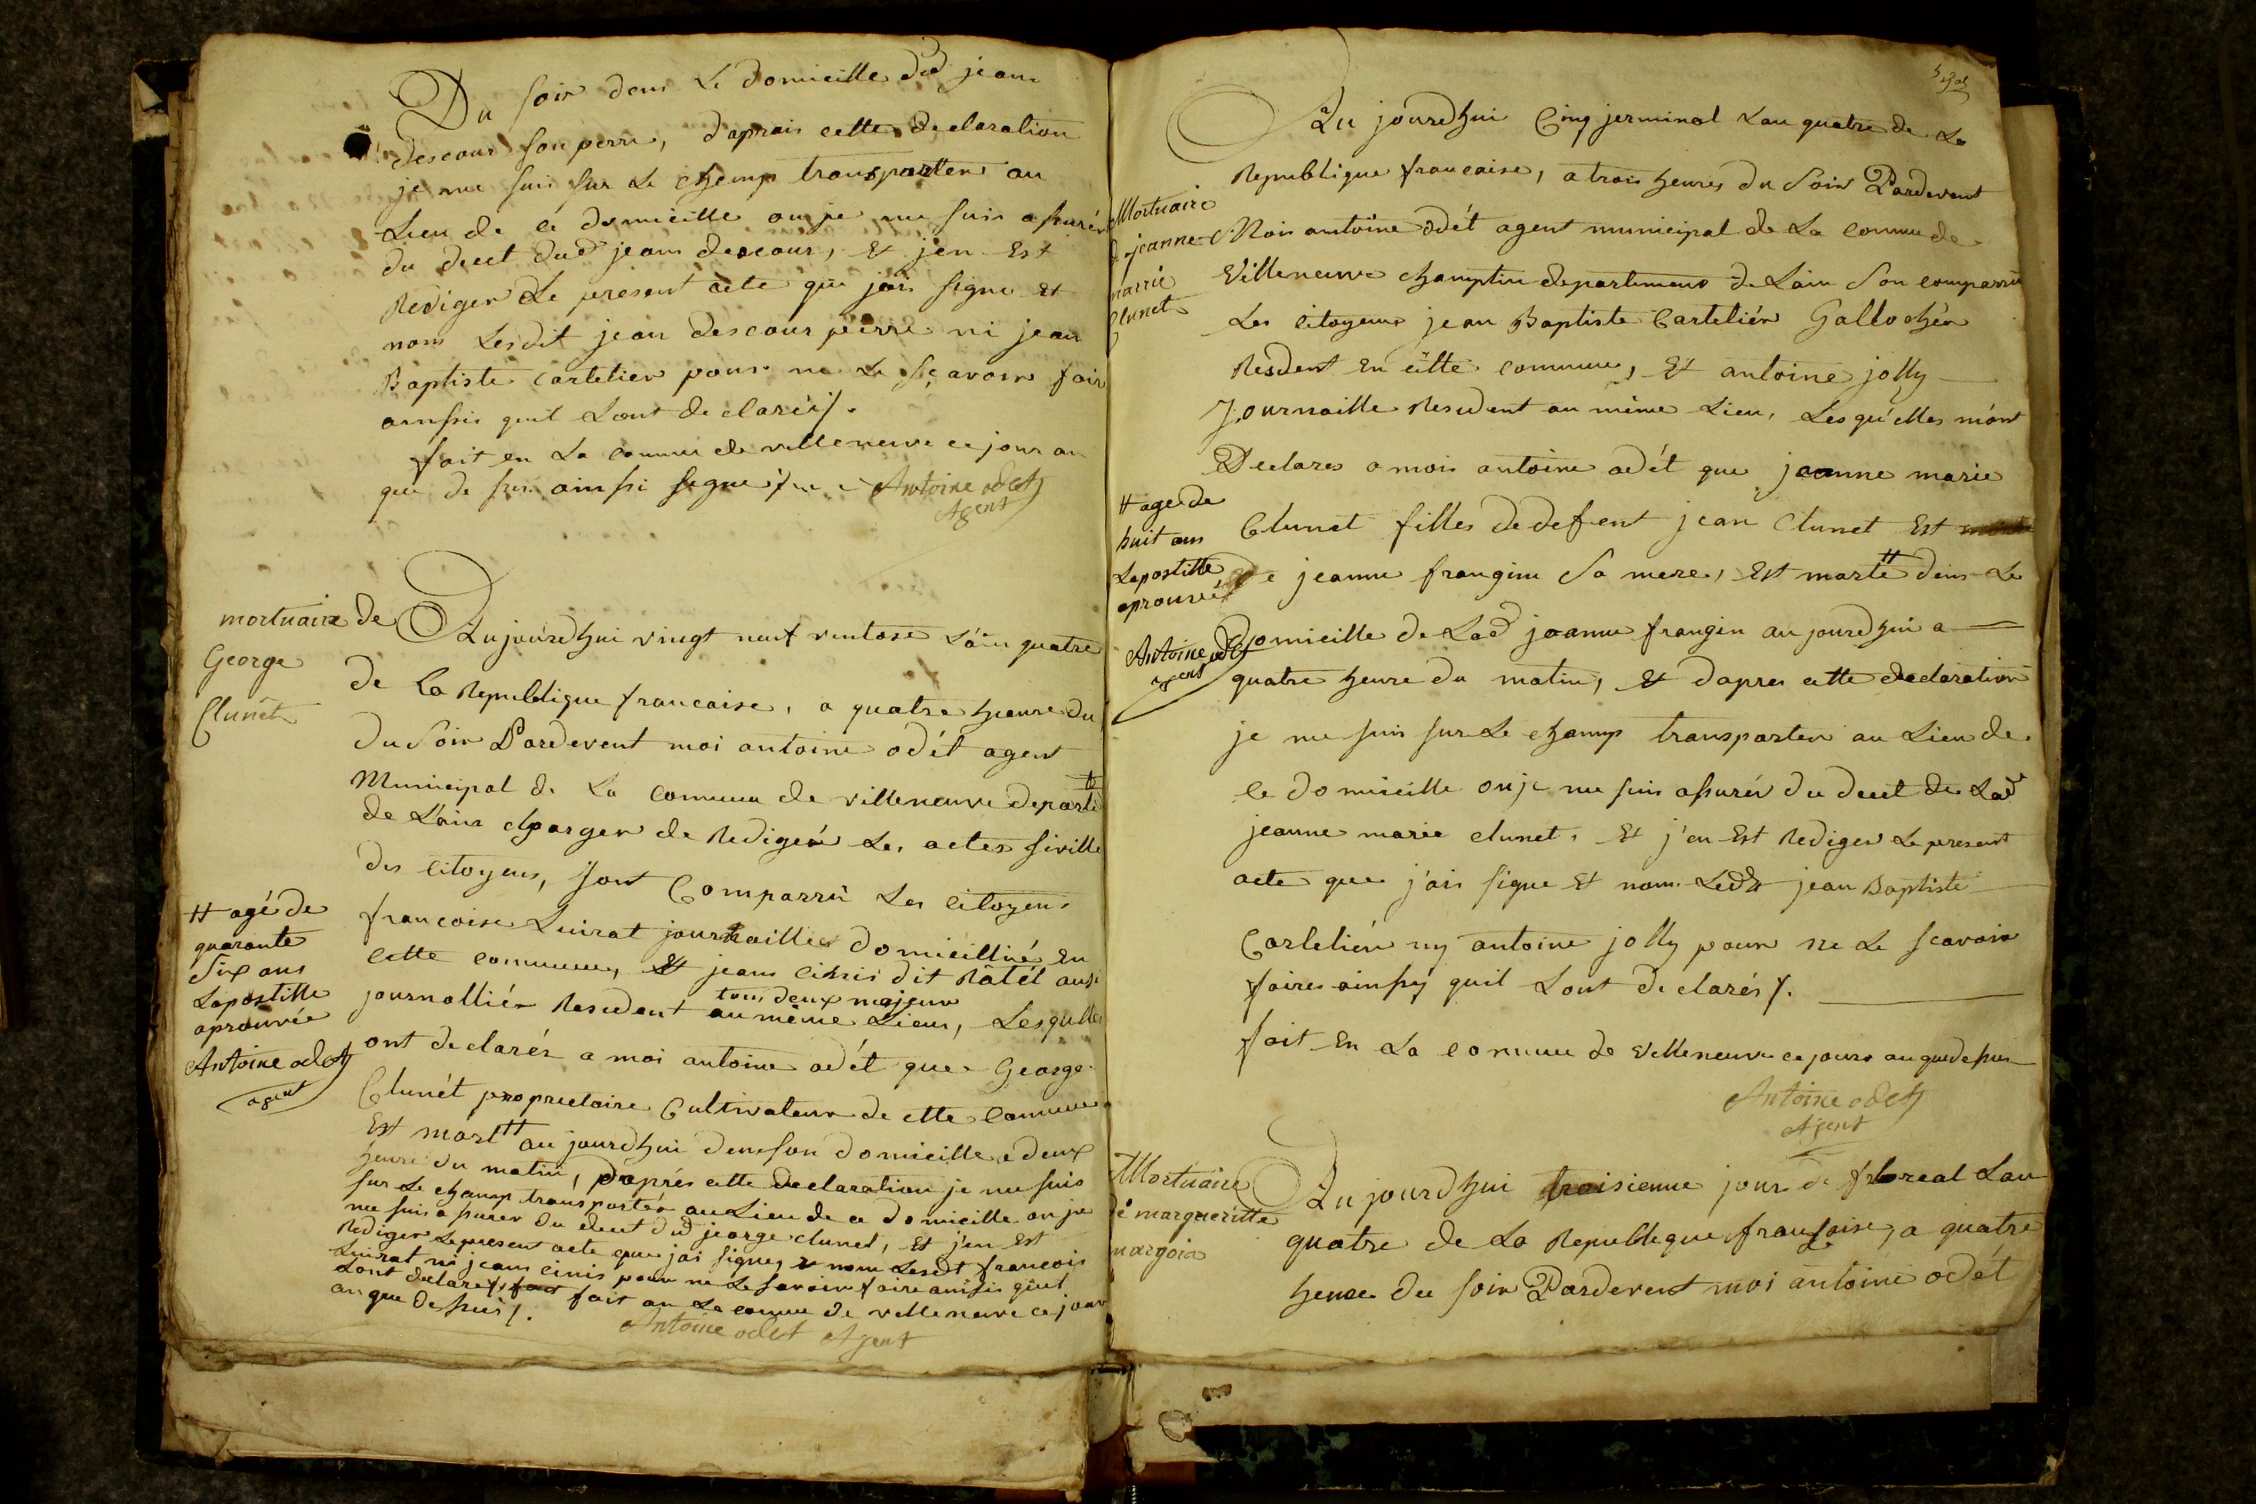 Du soir dens le domicille dud jean
descour son perre, daprais cette declaration
je me suis sur le champ transporter au
Lieu de ce domicille ou je me suis assurér
du decet dud jean descour, et jen est
Rediger le present acte que jais signe et
nom Lesdit jean descour pierre ni jean
Baptiste cartelier pour ne le sçavoir fair
ainssis quil Lont declaréé/.
fait en la comune de villeneuve ce jour an
que de sus ainssi signe Antoine odet
Agent
mortuaire de
George
Clunét
Aujourdhui vingt neuf ventose L'ain quatre
de la Republique francaise, a quatre heure du
du Soir Pardevent moi antoine odét agent
Municipal de La comune de villeneuve departe
de L'ain charger de Redigér Les actes siville
des citoyens, sont Comparrù Les citoyens
francoise Luirat journaillier domicillié en
cette commune, Et jean cinis dit Ratét ausi
tous deux majeur
journalliér Resident au même Lieu, Lesquelles
ont declarér a moi antoine odét que George
Clunét propriétaire Cultivateur de ette Comune
Est mort # au jourdhui dens son domicille a deux
heure du matin, daprés cette declaration je me suis
sur le champ transportér au Lieu de ce domicille ou je
me suis assurer du decet dud jeorge clunet, et j'en est
Rediger Le present acte que jai signe, et nom Lesdit francois
Luirat ni jean cinis pour ne le savoir faire ainsis quil
Lont declare/. fait fait an La comune de villeneuve ce jour
an que dessus/.
Antoine odet Agent
# agé de
quarante
Six ans
Lapostille
aprouvée
Antoine odet
agent
Mortuaire
de jeanne
marrie
Clunet
Aujourdhui Cinq jerminal Lan quatre de La
Republique francaise, a trois heures du Soir Pardevent
Moi antoine odét agent municipal de La comune de
Villeneuve champtin departement de Lain Son comparru
Les citoyens jean Baptiste Carteliér Gallochér
Resdent en cétte commune, Et antoine jolly
Journaille Resident au même Lieu, Lesqu'elles m'ont
Declares a mois antoine odét que jeanne marie
Clunet filles de defent jean Clunet Est
de jeanne frangin Sa mere, Est marte # dens Le
Domicille de Lad jeanne frangin aujourdhui a
quatre heure du matin, et dapres cette declaration
je me suis sur Le champ transporter au Lieu de
ce domicille ou je me suis assurér du decet de Lade
jeanne marie clunet, Et j'en Est Rediger Le present
acte que j'ais signe Et nom Ledit jean Baptiste
Carteliér ny antoine jolly pour ne Le scavoir
faire ainssy quil Lont declarés/.
fait En La comune de Villeneuve ce jour an que de sus
Antoine odet
Agent
# age de
huit ans
Lapostille
aprouvée
Antoine odet
agent
Mortuaire
de margueritte
margoin
Aujourdhui troisieme jour de floreal Lan
quatre de La Republique fransaise, a quatre
heure du soir Pardevent moi antoine odét